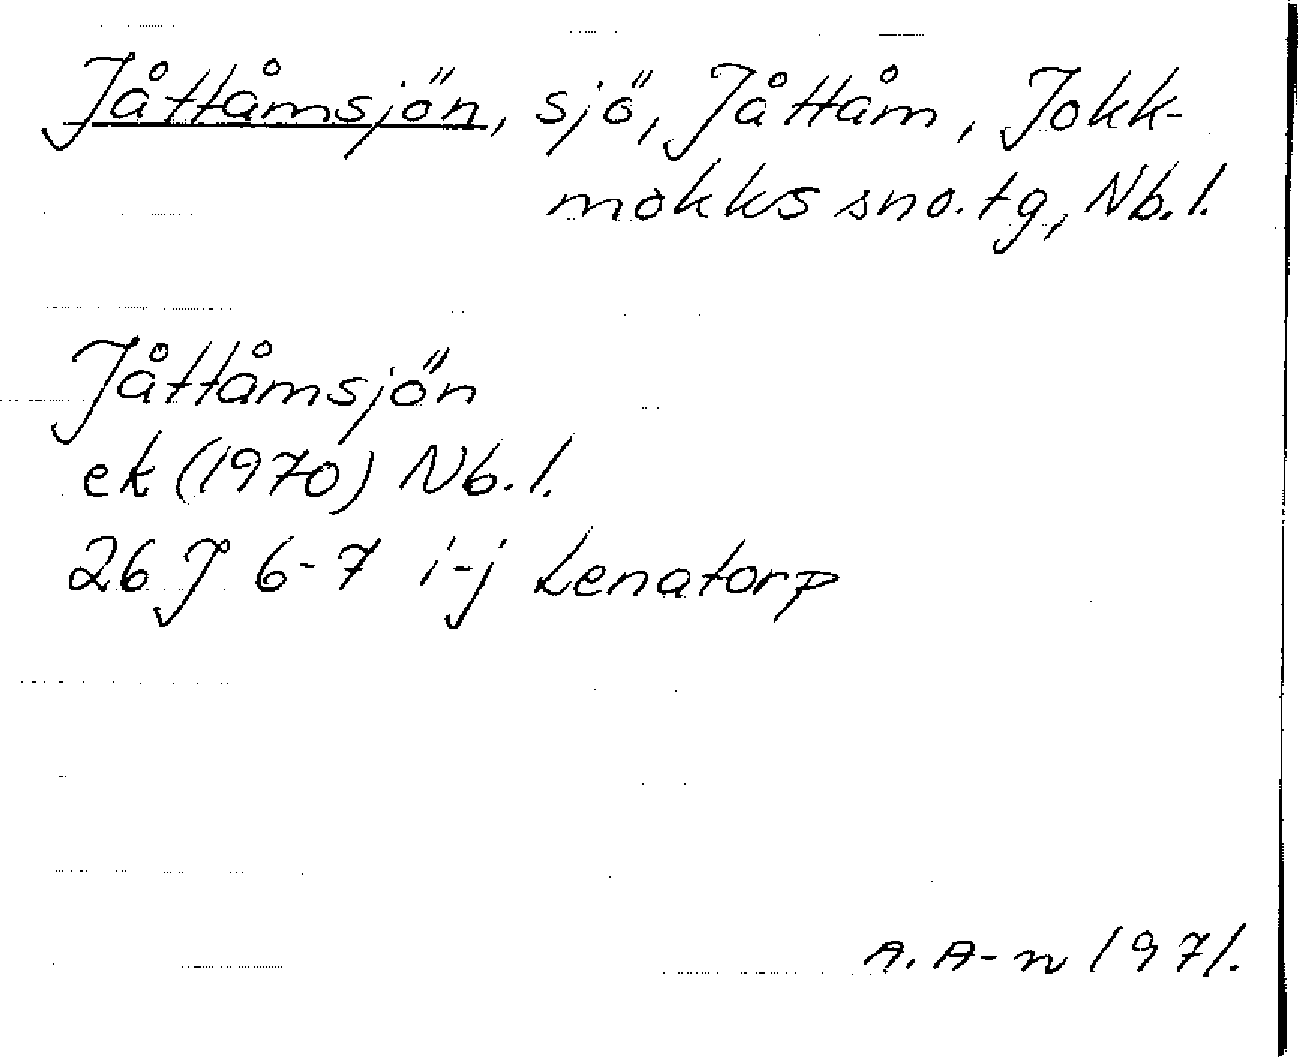 Jåttåmsjön, sjö, Jåttåm, Jokk-
mokks sno. tg, Nb. l.
Jåttåmsjön
ek (1970) Nb. l.
26 J 6-7 i-j Lenatorp
A. A-n 1971.